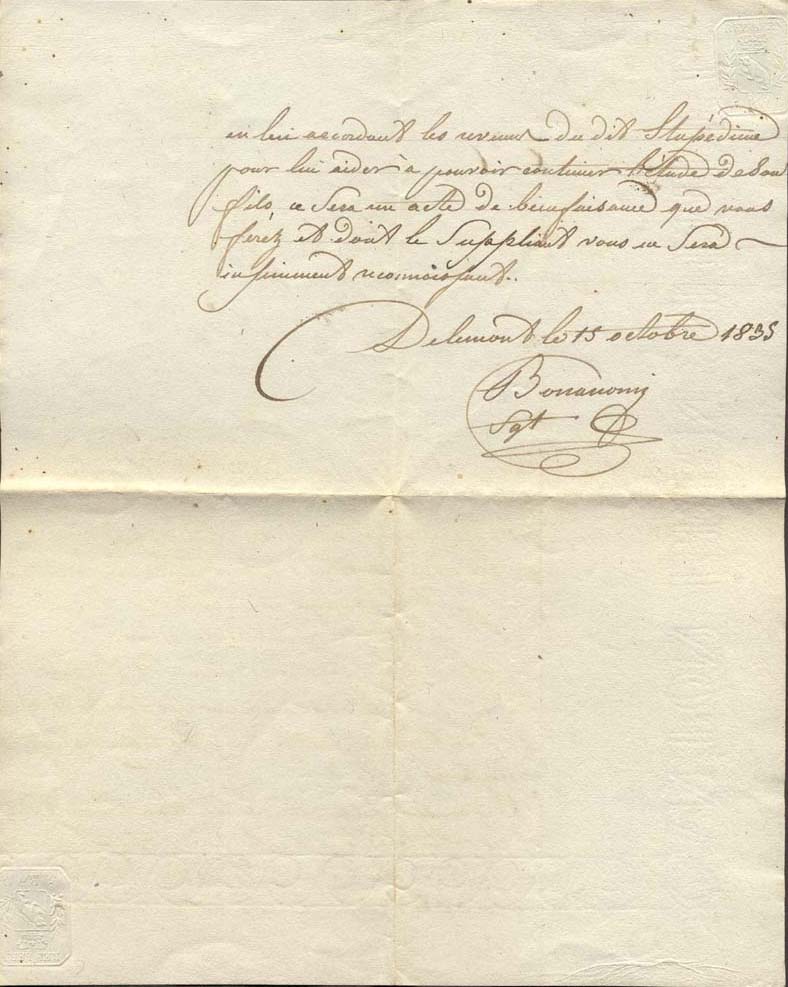 en lui accordant les revenus du dit Stipédime
pour lui aider à pouvoir continuer l'étude de Son
fils, ce Sera un acte de bienfaisance que vous
feréz et dont le Suppliant vous en Sera
infiniment reconnoissant.
Delemont le 15 octobre 1835
Bonanomi
Sgt